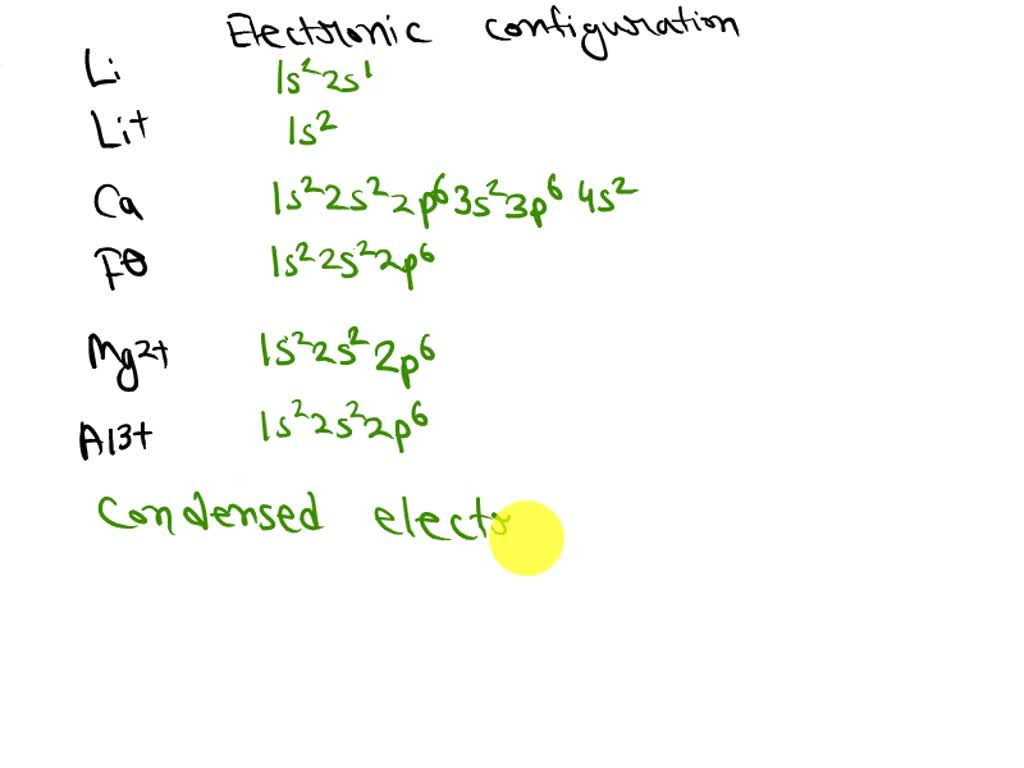 Electronic configuration
Li 1s² 2s¹
Li+ 1s²
Ca 1s² 2s² 2p⁶ 3s² 3p⁶ 4s²
F⊖ 1s² 2s² 2p⁶
Mg2+ 1s² 2s² 2p⁶
Al3+ 1s² 2s² 2p⁶
Condensed electr